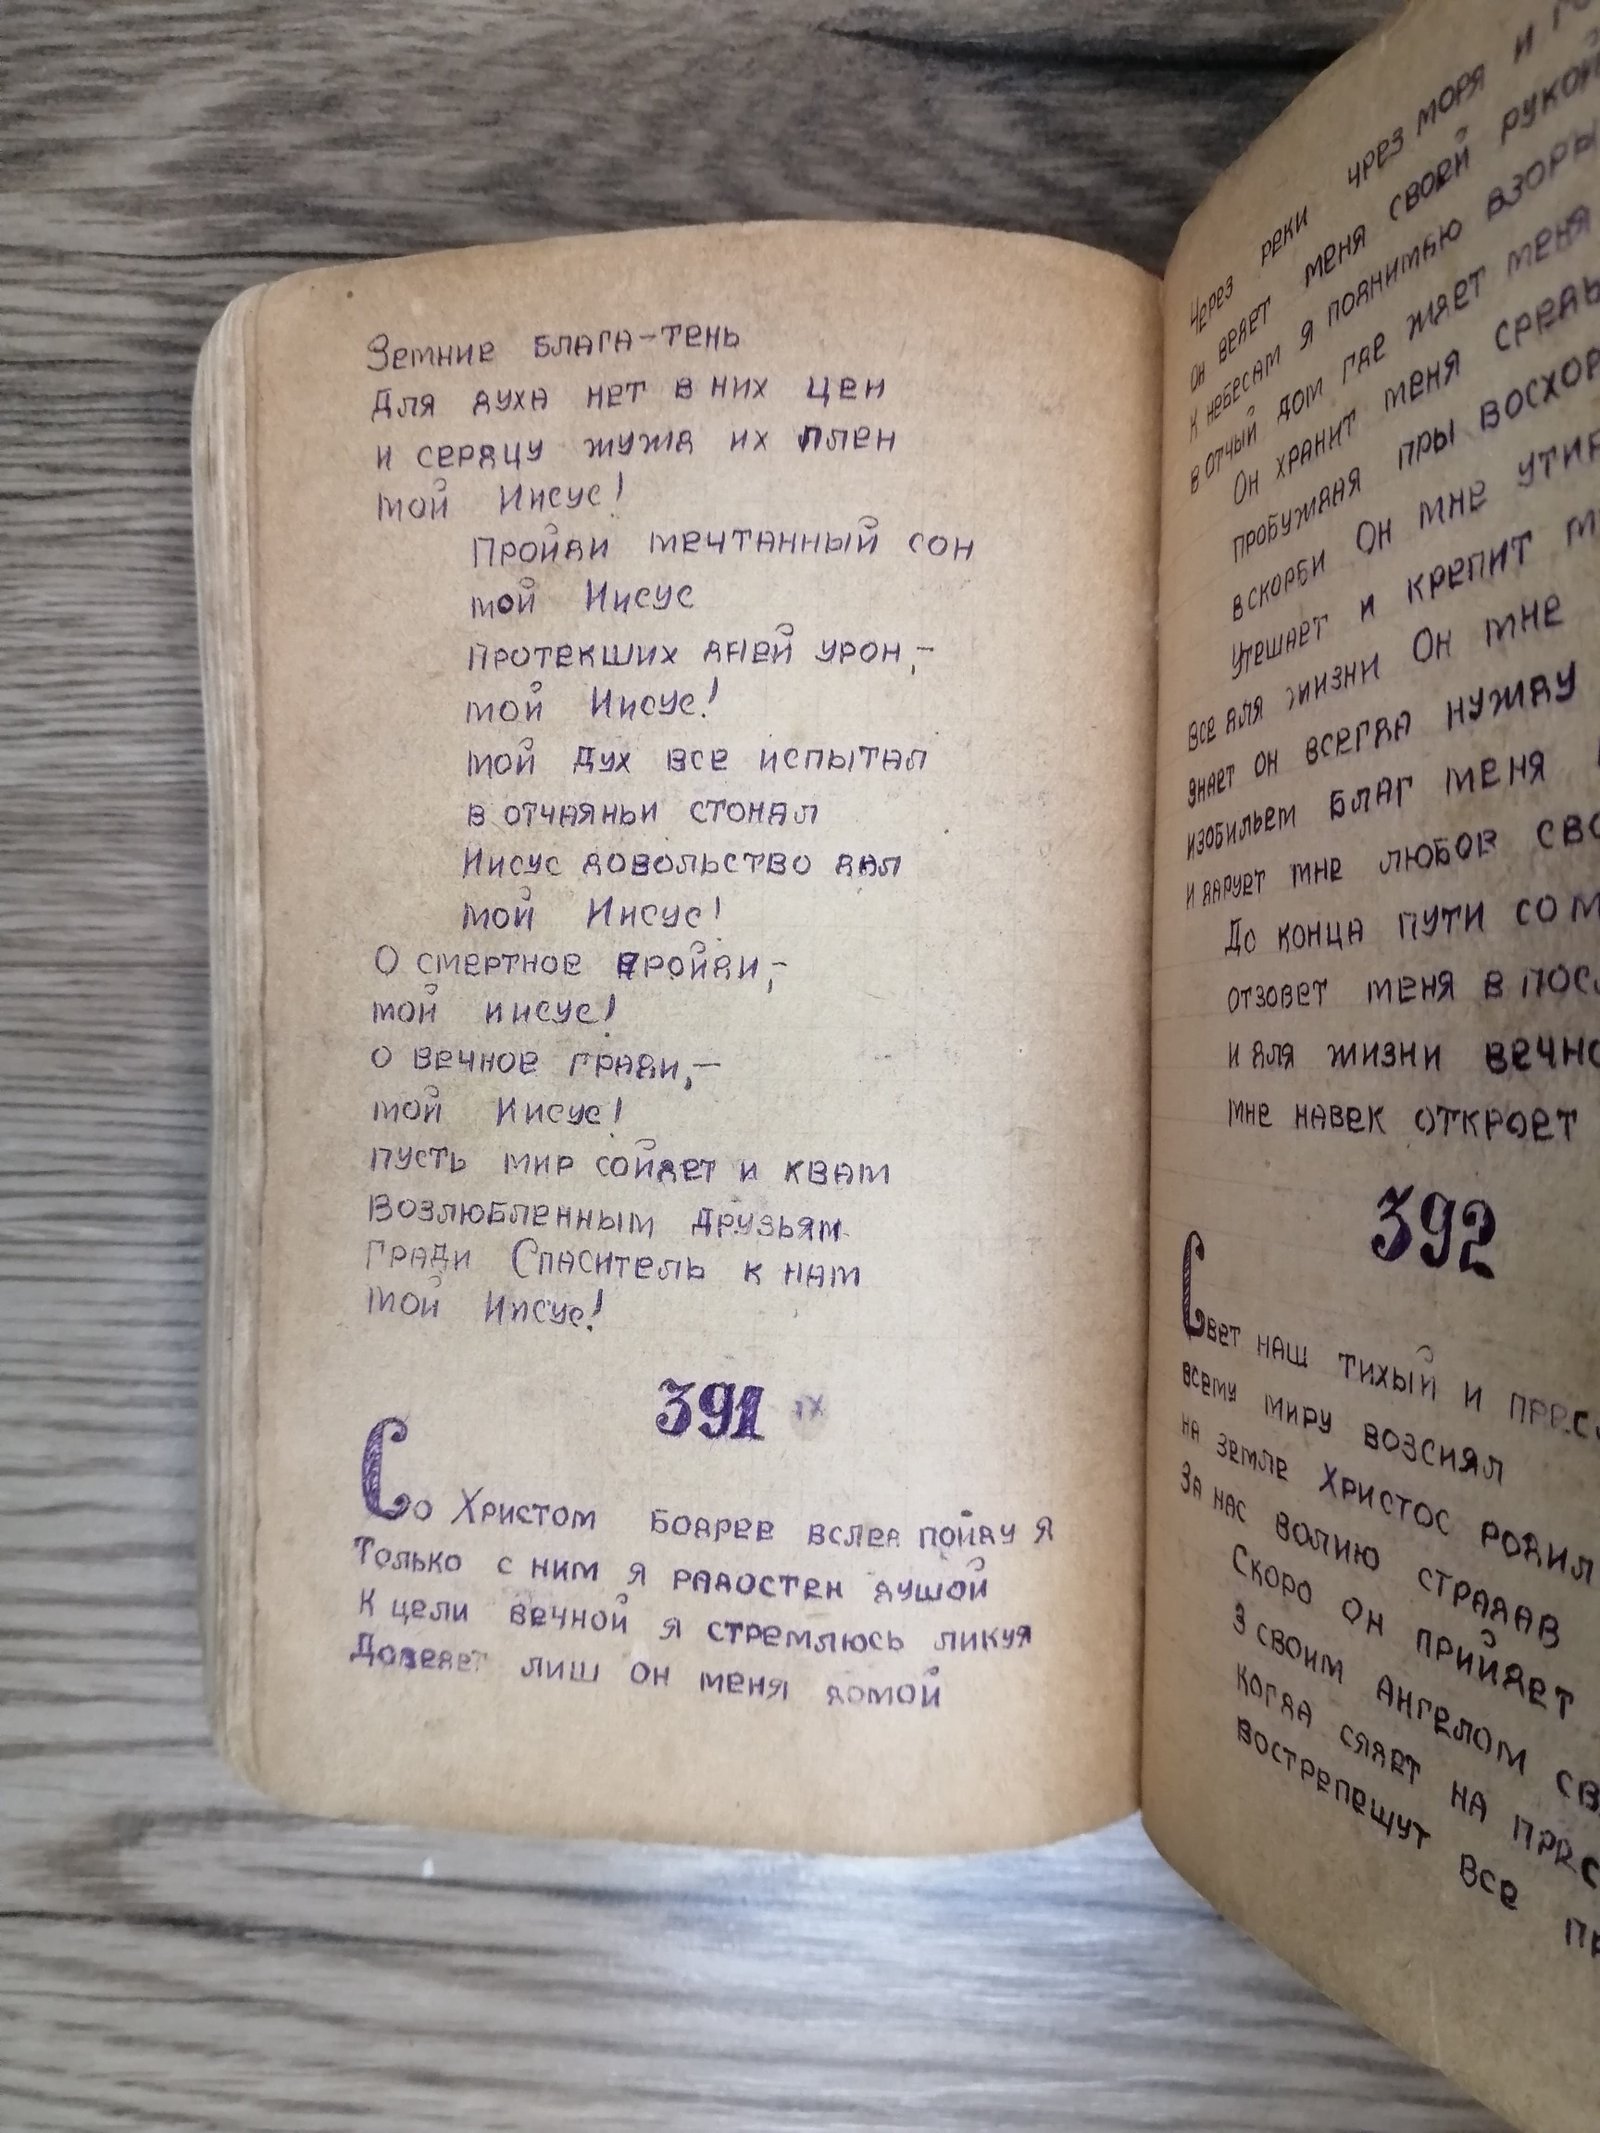 Земние блага-тень
Для духа нет в них цен
и сердцу жужд их плен
мой Иисус!
Пройди мечтанный сон
мой Иисус
Протекших дней урон,-
мой Иисус!
мой Дух все испытал
в отчаяньи стонал
Иисус довольство дал
мой Иисус!
О смертное пройди,-
мой иисус!
о вечное гряди,-
мой Иисус!
пусть мир сойдет и квам
Возлюбленным друзьям.
Гряди Спаситель к нам
мой Иисус!
391 IX
Со Христом бодрее вслед пойду я
Только с ним я радостен душой
К цели вечной я стремлюсь ликуя
Доведет лиш он меня домой
Через реки чрез моря и
Он ведет меня своей рукой
К небесам я поднимаю взоры
в отчый дом где ждет меня
Он хранит меня средь
пробуждая пры восхо
вскорби Он мне утир
Утешает и крепит
все для жизни Он мне
знает он всегда нужду
изобильем благ меня
и дарует мне любов сво
До конца пути со м
отзовет меня в посл
и для жизни вечно
мне навек откроет
392
Свет наш тихый и пре.с
всему миру возсиял
на земле Христос родил
За нас волию страдав
Скоро он прийдет
З своим Ангелом св
когда сядет на прес
вострепещут все